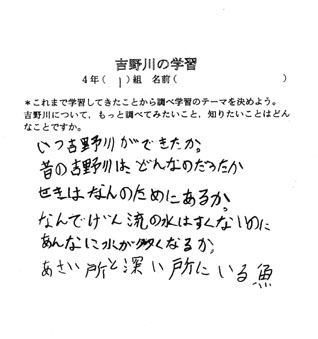 吉野川の学習
4年( 1 )組 名前( )
＊これまで学習してきたことから調べ学習のテーマを決めよう。
吉野川について，もっと調べてみたいこと，知りたいことはどん
なことですか。
いつ吉野川ができたか。
昔の吉野川は、どんなのだったか
せきはなんのためにあるか。
なんでげん流の水はすくないのに
あんなに水が多くなるか。
あさい所と深い所にいる魚